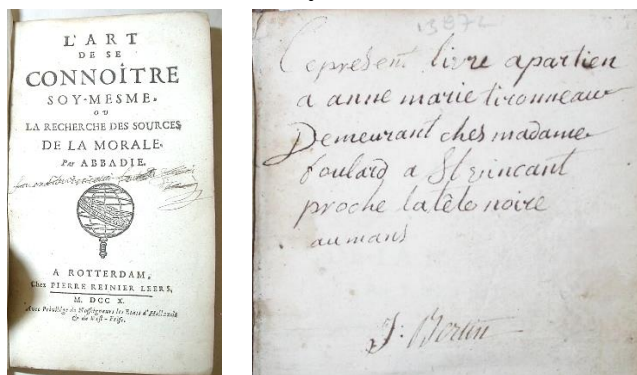 L'ART
DE SE
CONNOÎTRE
SOY-MESME,
OU
LA RECHERCHE DES SOURCES
DE LA MORALE.
Par ABBADIE.
A ROTTERDAM,
Chez PIERRE REINIER LEERS,
M. DCC X.
Avec Privilége de Nosseigneurs les Etats d'Hollande
& de West-Frise.
Cepresent livre apartien
a anne marie tironneau
Demeurant ches madame
foulard a St vincant
proche latéte noire
aumans
J. Bertin